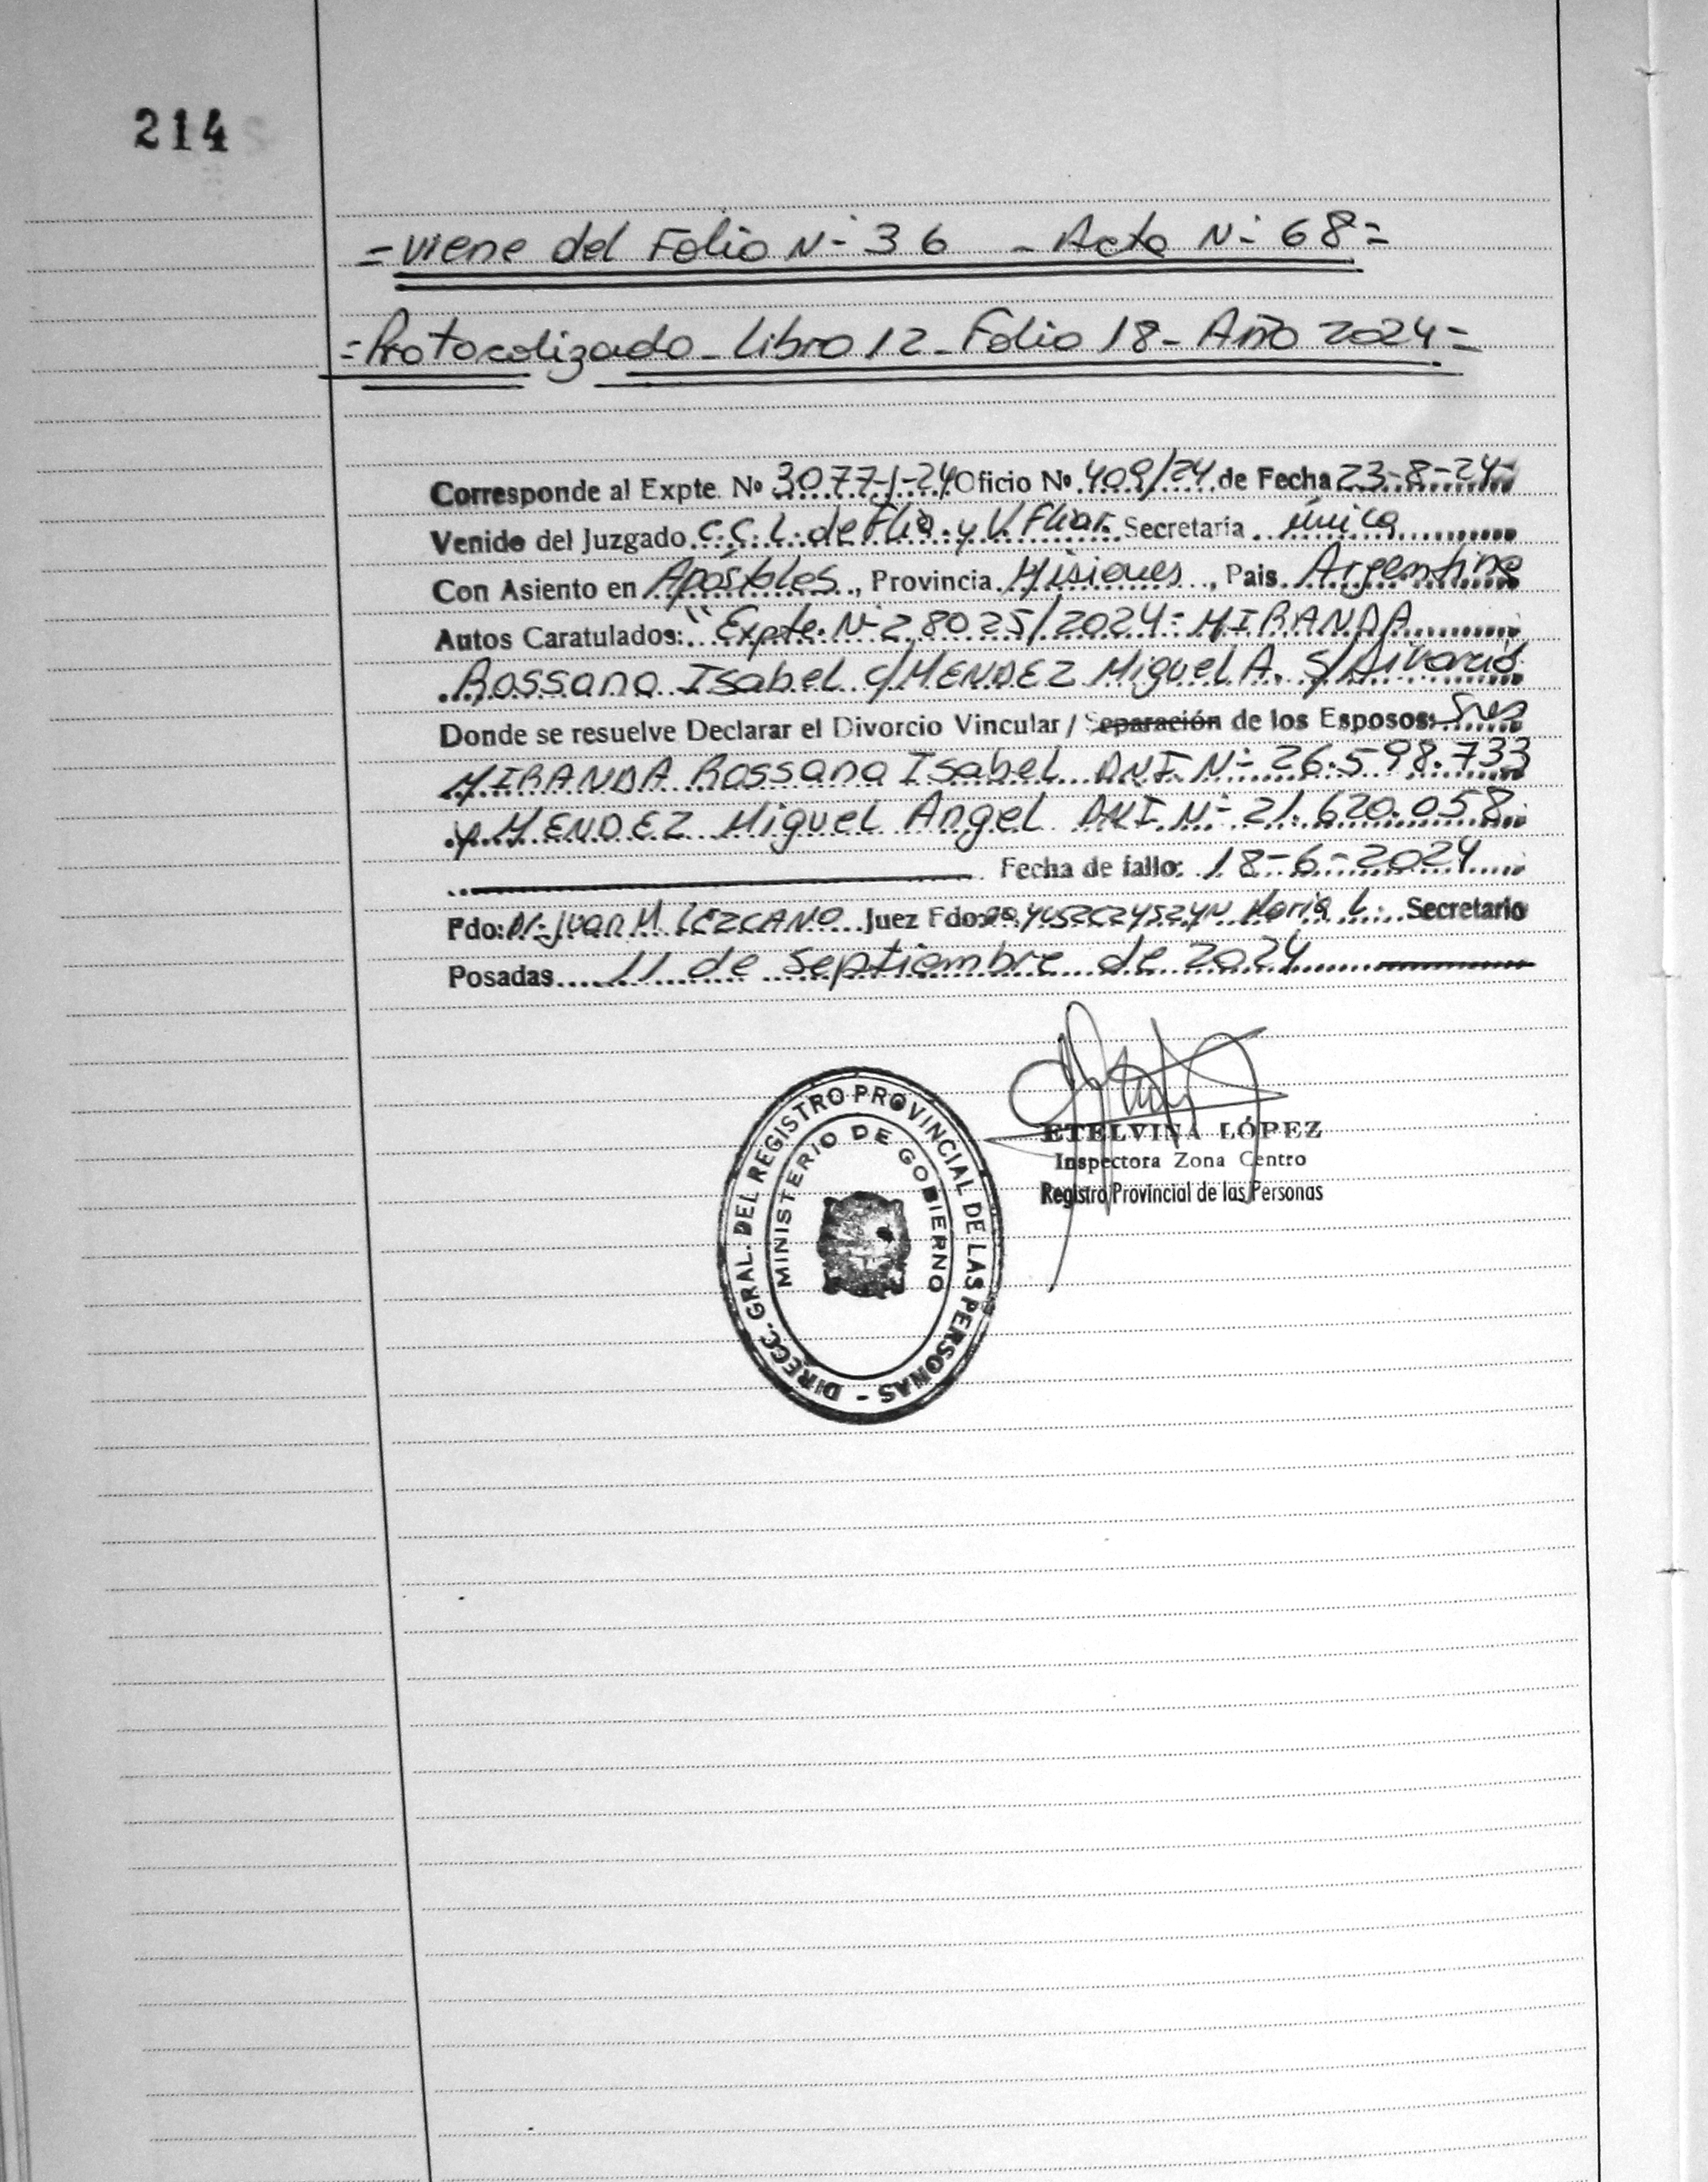 214
= Viene del Folio N- 36 - Acta N- 68 =
= Protocolizado - Libro 12 - Folio 18 - Año 2024 =
Corresponde al Expte. Nº 3077-J-24 Oficio Nº 409/24 de Fecha 23-8-24-
Venido del Juzgado C.C.L. de Flia. y V. Fliar. Secretaría única
Con Asiento en Apóstoles, Provincia Misiones, Pais Argentina
Autos Caratulados: "Expte. N- 28025/2024 - MIRANDA
Rossana Isabel c/ MENDEZ Miguel A. S/Divorcio
Donde se resuelve Declarar el Divorcio Vincular / Separación de los Esposos: Sres
MIRANDA Rossana Isabel DNI N- 26.598.733
y MENDEZ Miguel Angel DNI N- 21.620.058
Fecha de fallo: 18-6-2024
Fdo: Dr. Juan M. LEZCANO Juez Fdo: María L. Secretario
Posadas 11 de Septiembre de 2024
DIRECC. GRAL. DEL REGISTRO PROVINCIAL DE LAS PERSONAS -
MINISTERIO DE GOBIERNO
ETELVINA LÓPEZ
Inspectora Zona Centro
Registro Provincial de las Personas